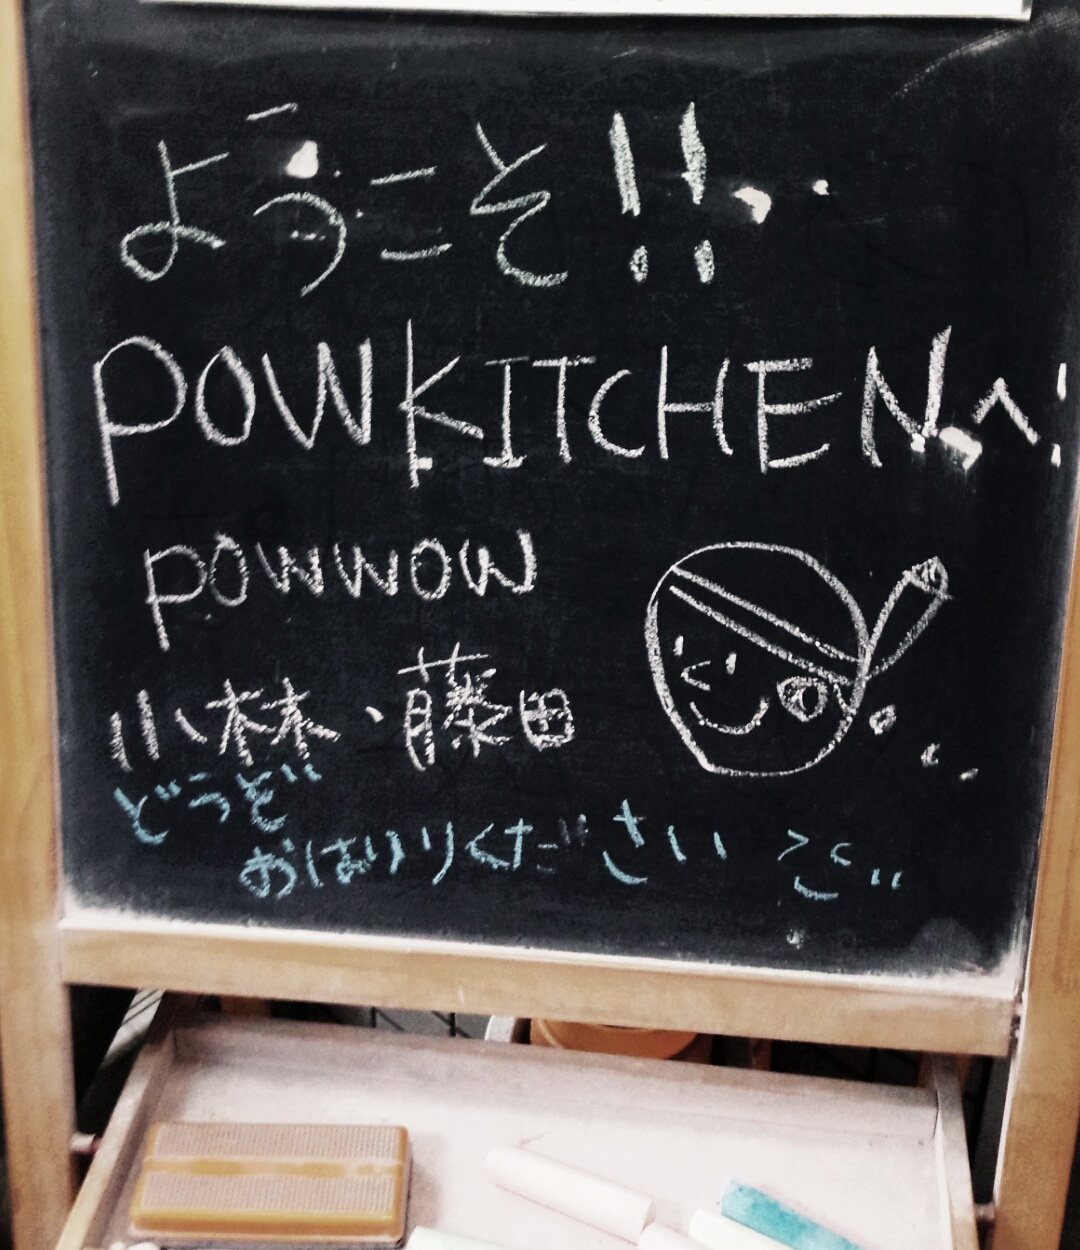 ようこそ!!
POWKITCHENへ!
POWWOW
小林、藤田
どうぞ
おはいりください